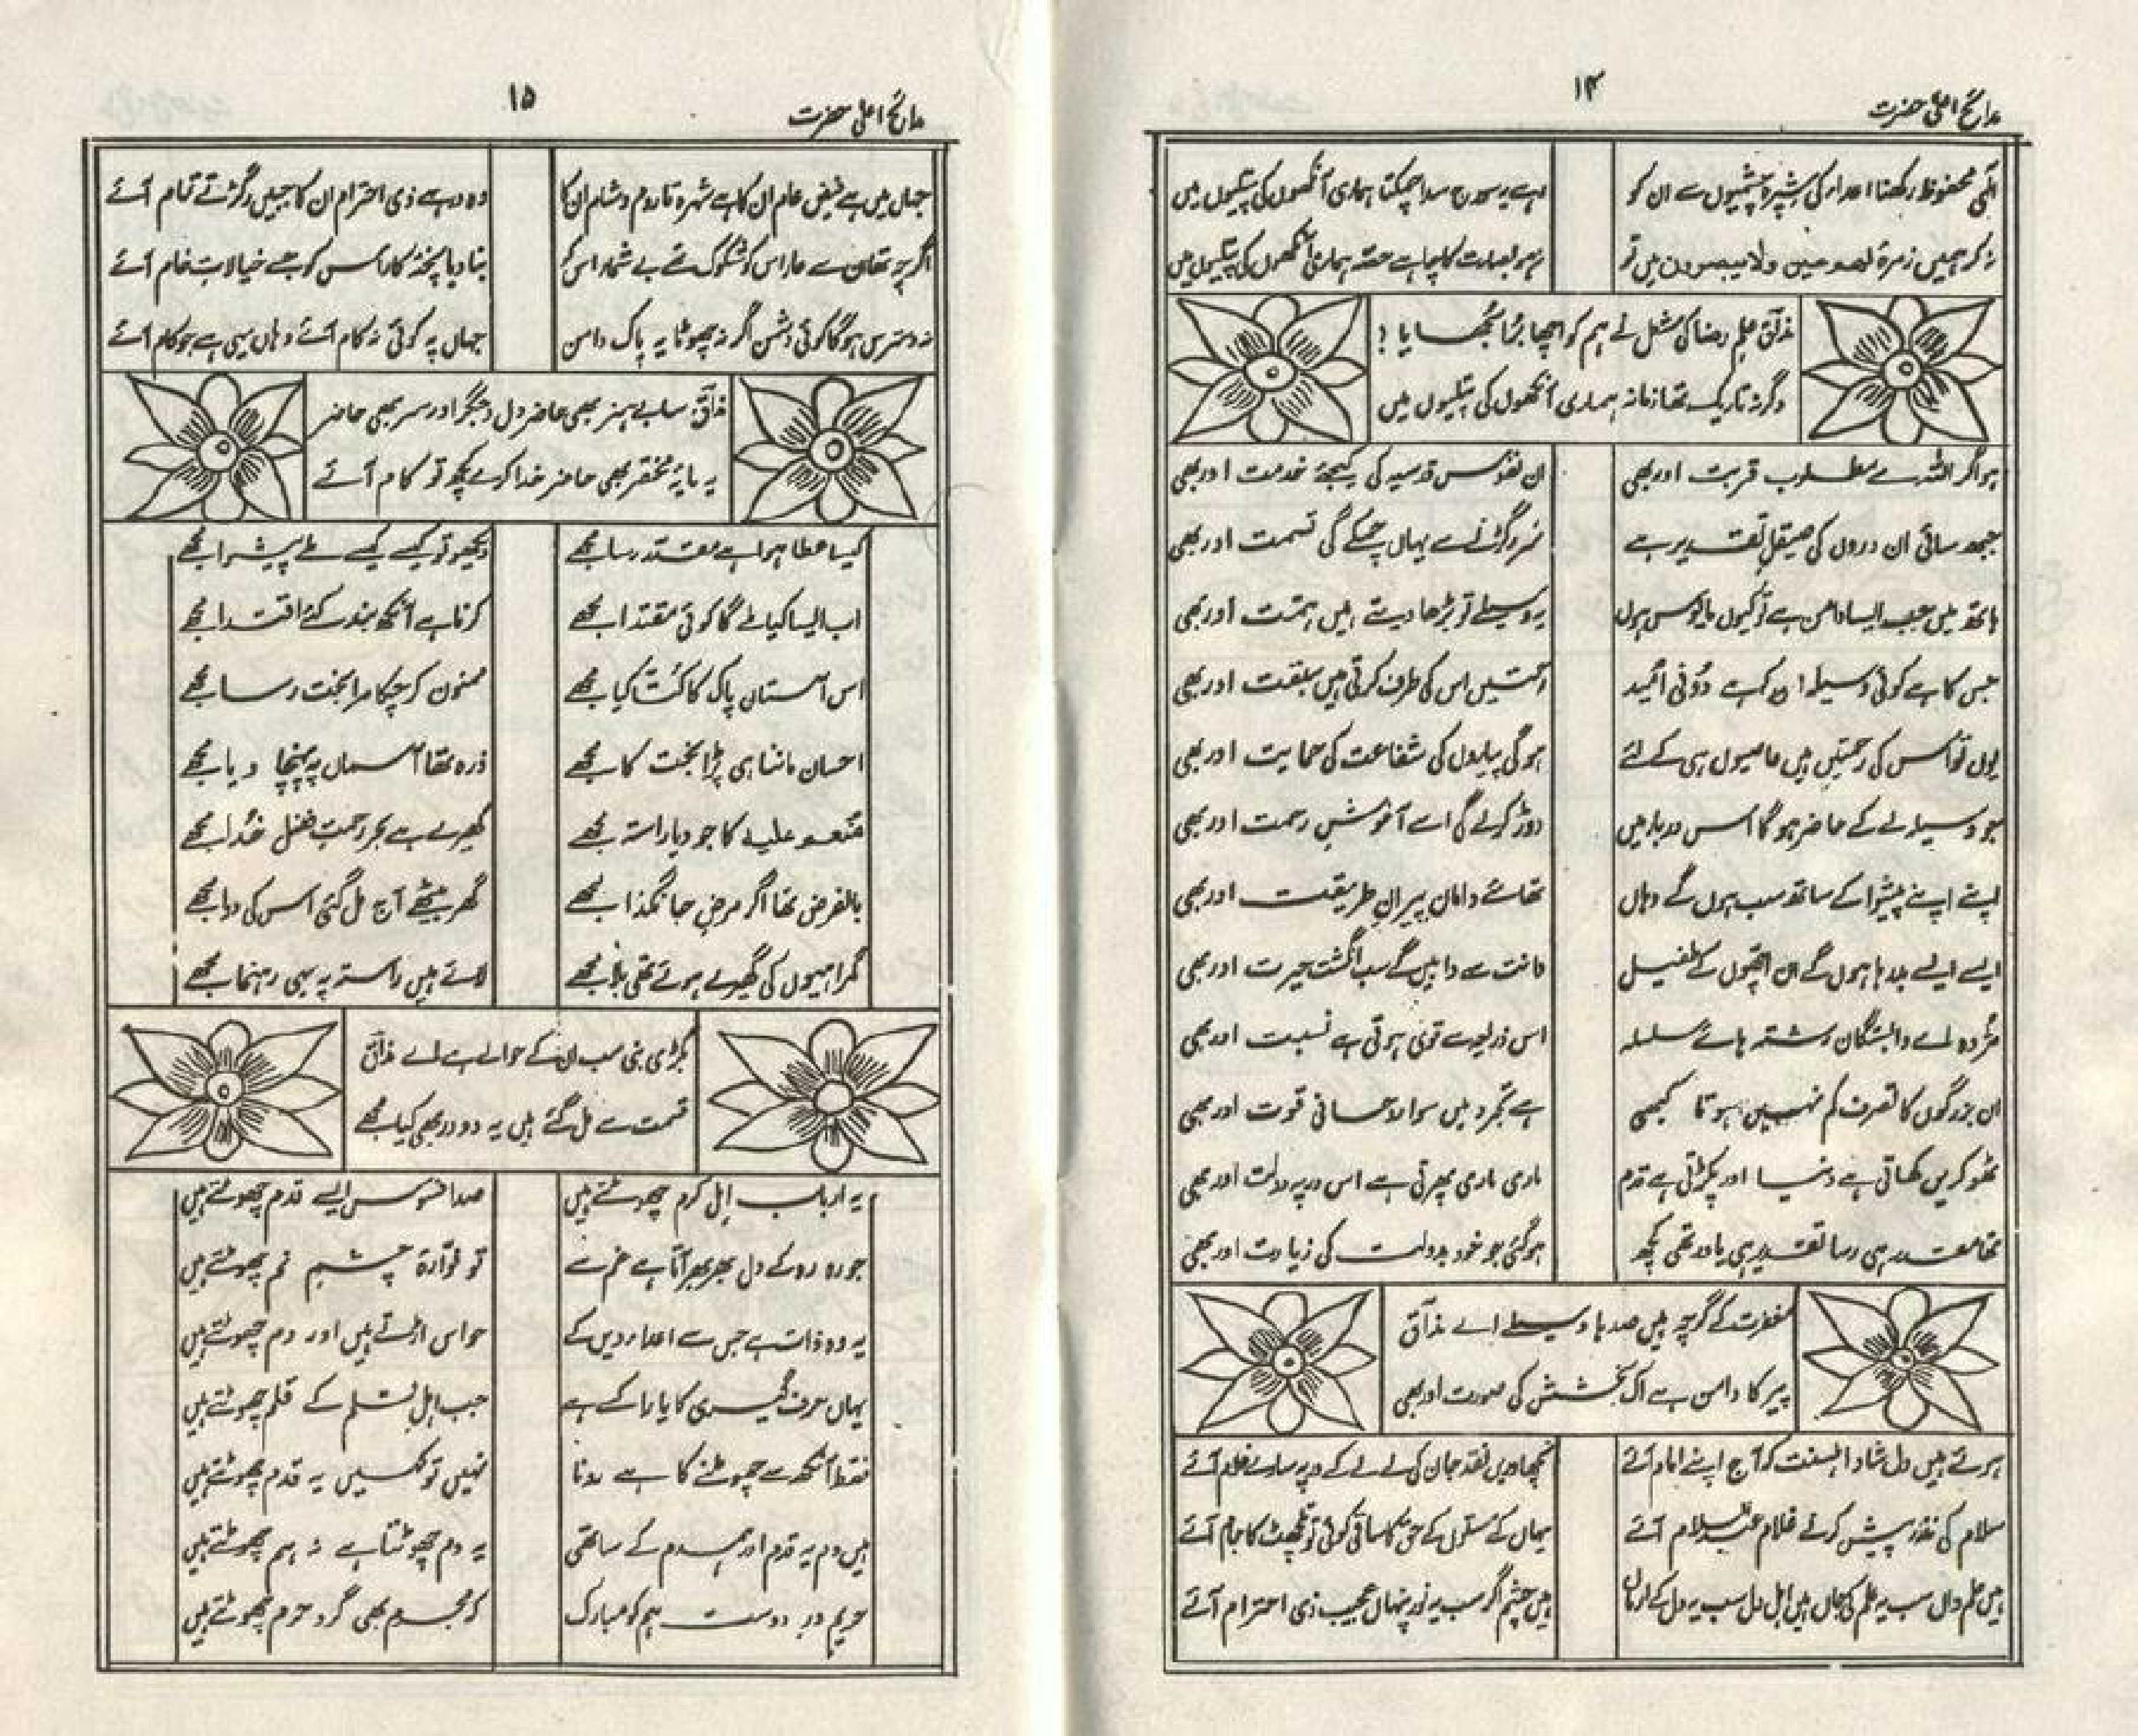 ۱۴
مدائح اعلیٰ حضرت
الٰہی محفوظ رکھنا اعداء کی شپرہ چشمیوں سے ان کو
رہے یہ سورج سدا چمکتا ہماری آنکھوں کی پتلیوں میں
نہ کر ہمیں زمرۃ لھم عین ولا یبصرون میں تو
ہماری آنکھوں کی پتلیوں میں
مذاق علم رضا کی مشعل نے ہم کو اچھا برا سُجھایا !
وگرنہ تاریک تھا زمانہ ہماری آنکھوں کی پتلیوں میں
ہو اگر اللہ سے مطلوب قربت اور بھی
ان نفوس قدسیہ کی کیجئے خدمت اور بھی
جبھہ سائی ان دروں کی صیقلِ تقدیر ہے
سر رگڑنے سے یہاں چمکے گی قسمت اور بھی
ہاتھ میں جب ایسا دامن ہے تو کیوں مایوس ہوں
یہ وسیلے تو بڑھا دیتے ہیں ہمت اور بھی
جس کا ہے کوئی وسیلہ ان کی ہے دُونی اُمید
رحمتیں اس کی طرف کرتی ہیں سبقت اور بھی
یوں تو اس کی رحمتیں ہیں عاصیوں ہی کے لئے
ہوگی پیاروں کی شفاعت کی حمایت اور بھی
جو وسیلہ لے کے حاضر ہوگا اس دربار میں
دوڑ کر لے گی اسے آغوشِ رحمت اور بھی
اپنے اپنے پیشوا کے ساتھ سب ہوں گے وہاں
تھامے دامانِ پیرانِ طریقت اور بھی
ایسے ایسے بد رہا ہوں گے ان اچھوں کے طفیل
دانت سے دابیں گے سب انگشت حیرت اور بھی
مژدہ اے وابستگان رشتہ ہائے سلسلہ
اس ذریعہ سے قوی ہوتی ہے نسبت اور بھی
ان بزرگوں کا تصرف کم نہیں ہوتا کبھی
ہے تجرد میں سوا روحانی قوت اور بھی
ٹھوکریں کھاتی ہے دنیا اور پکڑتی ہے قدم
ماری ماری پھرتی ہے اس در پہ دولت اور بھی
تھا مقدر ہی رسا تقدیر ہی یاور تھی کچھ
ہوگئی جو خود بدولت کی زیارت اور بھی
مغفرت کے گرچہ ہیں صدہا وسیلے اے مذاق
پیر کا دامن ہے اک بخشش کی صورت اور بھی
ہوئے ہیں دل شاد اہلسنت کو آج اپنے امام آئے
نچھاور میں نقد جاں کی لے لے کے در پہ سارے غلام آئے
سلام کی نذر پیش کرنے غلام عبدالسلام آئے
یہاں کے متوالوں کے حق کا ساقی کوئی تو تلچھٹ کا جام آئے
ہیں علم داں سب یہ علم کی جاں ہیں اہل دل سب یہ دل کے ارماں
ہیں چشم اگر سب یہ نور پنہاں عجیب ذی احترام آئے
۱۵
مدائح اعلیٰ حضرت
جہاں میں ہے فیض عام ان کا ہے شہرہ تا روم و شام ان کا
وہ در ہے ذی احترام ان کا جبیں رگڑتے تمام آئے
اگرچہ تھا ان سے عار اس کو شکوک تھے بے شمار اس کو
بنا دیا پختہ کار اس کو جسے خیالات خام آئے
نہ دسترس ہوگا کوئی دشمن اگر نہ چھوٹا یہ پاک دامن
جہاں پہ کوئی نہ کام آئے وہاں یہی ہے جو کام آئے
مذاق سا بے ہنر بھی حاضر دل و جگر اور سر بھی حاضر
یہ مایۂ مختصر بھی حاضر خدا کرے کچھ تو کام آئے
کیسا عطا ہوا ہے مقتدر رسا مجھے
دیکھو تو کیسے کیسے ملے پیشوا مجھے
اب ایسا کیا ملے گا کوئی مقتدا مجھے
کرنا ہے آنکھ بند کئے اقتدا مجھے
اس آستان پاک کا کُتّا کیا مجھے
ممنون کر چکا مرا بخت رسا مجھے
احسان ماننا ہی پڑا بخت کا مجھے
ذرہ تھا آسماں پہ پہنچا دیا مجھے
منعم علیہ کا جو دیا راستہ مجھے
گھیرے ہے بحر رحمت فضل خُدا مجھے
بالفرض تھا اگر مرضِ جانگذا مجھے
گھر بیٹھے آج مل گئی اس کی دوا مجھے
گمراہیوں کی گھیرے ہوئے تھی بلا مجھے
لائے ہیں راستہ پہ یہی رہنما مجھے
بگڑی بنی سب ان کے حوالے ہے اے مذاق
قسمت سے مل گئے ہیں یہ دو در بھی کیا مجھے
یہ ارباب اہل کرم چھوٹتے ہیں
صد افسوس ایسے قدم چھوٹتے ہیں
جو رہ رہ کے دل بھر بھر آتا ہے غم سے
تو فوّارۂ چشمِ نم چھوٹتے ہیں
یہ وہ ذات ہے جس سے اعداء دیں کے
حواس اڑتے ہیں اور دم چھوٹتے ہیں
یہاں حرف گیری کا یارا کسے ہے
جب اہلِ قلم کے قلم چھوٹتے ہیں
فقط آنکھ سے چھوٹنے کا ہے رونا
نہیں تو کسیں یہ قدم چھوٹتے ہیں
ہیں دم یہ قدم اور ہمدم کے ساتھی
یہ دم چھوٹتا ہے نہ ہم چھوٹتے ہیں
حریمِ درِ دوست ہم کو مبارک
کہ مجرم بھی گردِ حرم چھوٹتے ہیں